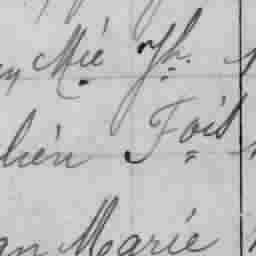 Mie Jh.
lien Fois
an Marie